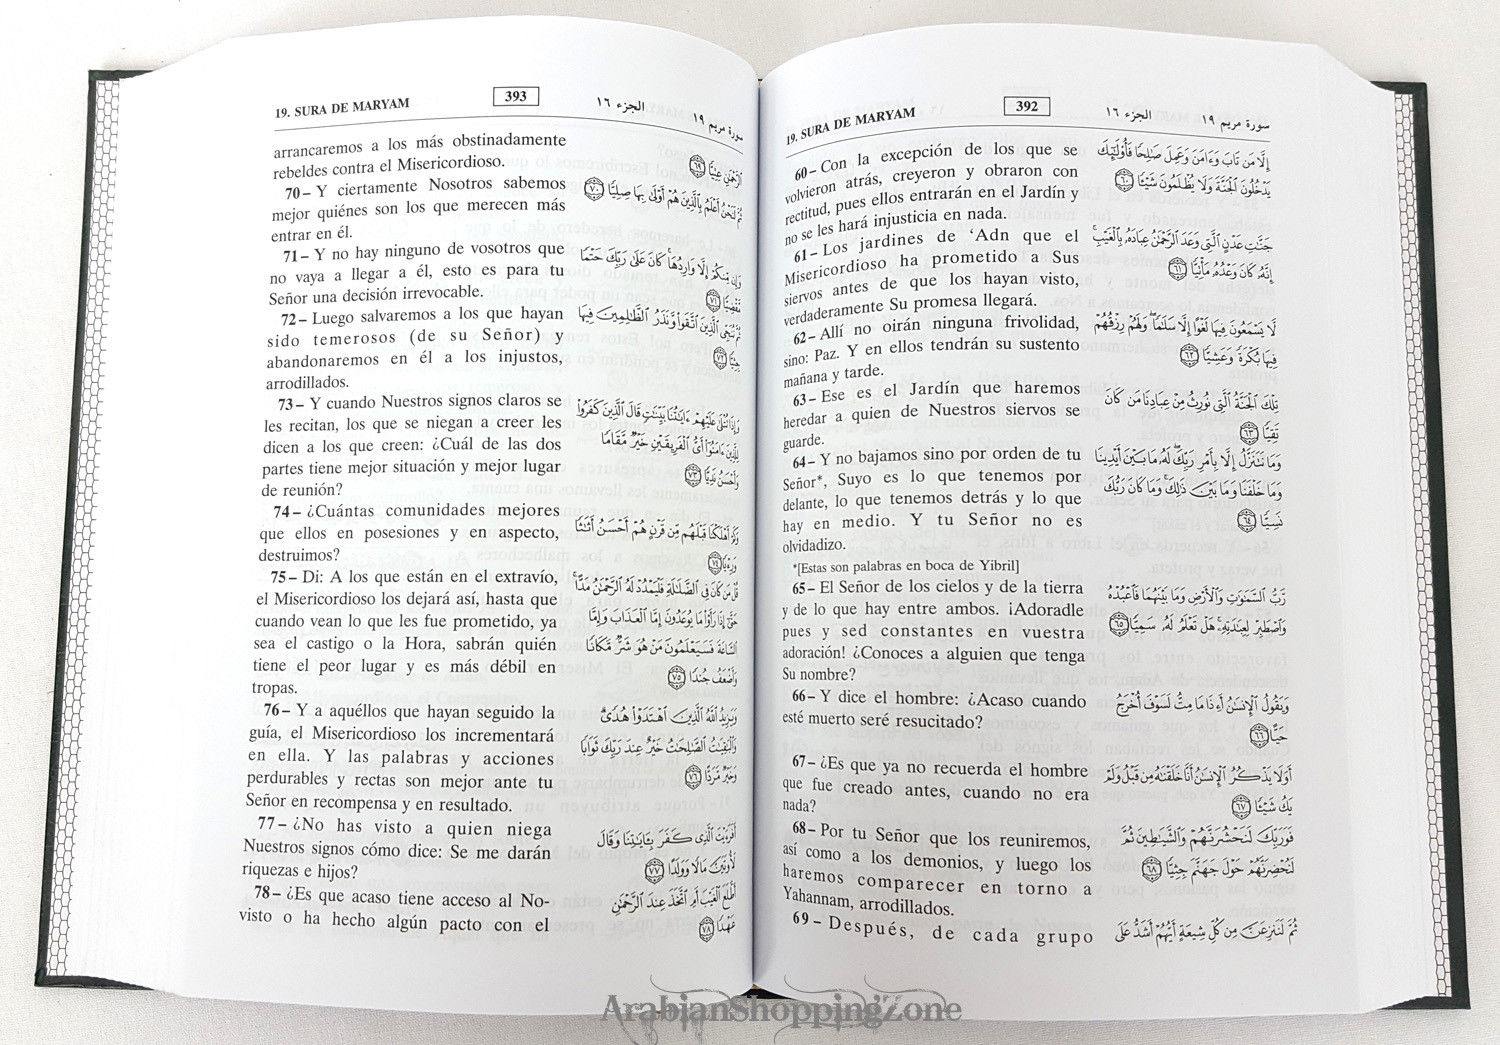 19. SURA DE MARYAM
392
الجزء ١٦
سورة مريم ١٩
60– Con la excepción de los que se
volvieron atrás, creyeron y obraron con
rectitud, pues ellos entrarán en el Jardín y
no se les hará injusticia en nada.
61– Los jardines de ‘Adn que el
Misericordioso ha prometido a Sus
siervos antes de que los hayan visto,
verdaderamente Su promesa llegará.
62– Allí no oirán ninguna frivolidad,
sino: Paz. Y en ellos tendrán su sustento
mañana y tarde.
63– Ese es el Jardín que haremos
heredar a quien de Nuestros siervos se
guarde.
64– Y no bajamos sino por orden de tu
Señor*, Suyo es lo que tenemos por
delante, lo que tenemos detrás y lo que
hay en medio. Y tu Señor no es
olvidadizo.
*[Estas son palabras en boca de Yibril]
65– El Señor de los cielos y de la tierra
y de lo que hay entre ambos. ¡Adoradle
pues y sed constantes en vuestra
adoración! ¿Conoces a alguien que tenga
Su nombre?
66– Y dice el hombre: ¿Acaso cuando
esté muerto seré resucitado?
67– ¿Es que ya no recuerda el hombre
que fue creado antes, cuando no era
nada?
68– Por tu Señor que los reuniremos,
así como a los demonios, y luego los
haremos comparecer en torno a
Yahannam, arrodillados.
69– Después, de cada grupo
إِلَّا مَن تَابَ وَءَامَنَ وَعَمِلَ صَٰلِحًا فَأُو۟لَٰٓئِكَ
يَدْخُلُونَ ٱلْجَنَّةَ وَلَا يُظْلَمُونَ شَيْـًٔا ٦٠
جَنَّٰتِ عَدْنٍ ٱلَّتِى وَعَدَ ٱلرَّحْمَٰنُ عِبَادَهُۥ بِٱلْغَيْبِ ۚ
إِنَّهُۥ كَانَ وَعْدُهُۥ مَأْتِيًّا ٦١
لَّا يَسْمَعُونَ فِيهَا لَغْوًا إِلَّا سَلَٰمًا ۖ وَلَهُمْ رِزْقُهُمْ
فِيهَا بُكْرَةً وَعَشِيًّا ٦٢
تِلْكَ ٱلْجَنَّةُ ٱلَّتِى نُورِثُ مِنْ عِبَادِنَا مَن كَانَ
تَقِيًّا ٦٣
وَمَا نَتَنَزَّلُ إِلَّا بِأَمْرِ رَبِّكَ ۖ لَهُۥ مَا بَيْنَ أَيْدِينَا
وَمَا خَلْفَنَا وَمَا بَيْنَ ذَٰلِكَ ۚ وَمَا كَانَ رَبُّكَ
نَسِيًّا ٦٤
رَّبُّ ٱلسَّمَٰوَٰتِ وَٱلْأَرْضِ وَمَا بَيْنَهُمَا فَٱعْبُدْهُ
وَٱصْطَبِرْ لِعِبَٰدَتِهِۦ ۚ هَلْ تَعْلَمُ لَهُۥ سَمِيًّا ٦٥
وَيَقُولُ ٱلْإِنسَٰنُ أَءِذَا مَا مِتُّ لَسَوْفَ أُخْرَجُ
حَيًّا ٦٦
أَوَلَا يَذْكُرُ ٱلْإِنسَٰنُ أَنَّا خَلَقْنَٰهُ مِن قَبْلُ وَلَمْ
يَكُ شَيْـًٔا ٦٧
فَوَرَبِّكَ لَنَحْشُرَنَّهُمْ وَٱلشَّيَٰطِينَ ثُمَّ
لَنُحْضِرَنَّهُمْ حَوْلَ جَهَنَّمَ جِثِيًّا ٦٨
ثُمَّ لَنَنزِعَنَّ مِن كُلِّ شِيعَةٍ أَيُّهُمْ أَشَدُّ عَلَى
19. SURA DE MARYAM
393
الجزء ١٦
سورة مريم ١٩
arrancaremos a los más obstinadamente
rebeldes contra el Misericordioso.
70– Y ciertamente Nosotros sabemos
mejor quiénes son los que merecen más
entrar en él.
71– Y no hay ninguno de vosotros que
no vaya a llegar a él, esto es para tu
Señor una decisión irrevocable.
72– Luego salvaremos a los que hayan
sido temerosos (de su Señor) y
abandonaremos en él a los injustos,
arrodillados.
73– Y cuando Nuestros signos claros se
les recitan, los que se niegan a creer les
dicen a los que creen: ¿Cuál de las dos
partes tiene mejor situación y mejor lugar
de reunión?
74– ¿Cuántas comunidades mejores
que ellos en posesiones y en aspecto,
destruimos?
75– Di: A los que están en el extravío,
el Misericordioso los dejará así, hasta que
cuando vean lo que les fue prometido, ya
sea el castigo o la Hora, sabrán quién
tiene el peor lugar y es más débil en
tropas.
76– Y a aquéllos que hayan seguido la
guía, el Misericordioso los incrementará
en ella. Y las palabras y acciones
perdurables y rectas son mejor ante tu
Señor en recompensa y en resultado.
77– ¿No has visto a quien niega
Nuestros signos cómo dice: Se me darán
riquezas e hijos?
78– ¿Es que acaso tiene acceso al No-
visto o ha hecho algún pacto con el
ٱلرَّحْمَٰنِ عِتِيًّا ٦٩
ثُمَّ لَنَحْنُ أَعْلَمُ بِٱلَّذِينَ هُمْ أَوْلَىٰ بِهَا صِلِيًّا ٧٠
وَإِن مِّنكُمْ إِلَّا وَارِدُهَا ۚ كَانَ عَلَىٰ رَبِّكَ حَتْمًا
مَّقْضِيًّا ٧١
ثُمَّ نُنَجِّى ٱلَّذِينَ ٱتَّقَوا۟ وَّنَذَرُ ٱلظَّٰلِمِينَ فِيهَا
جِثِيًّا ٧٢
وَإِذَا تُتْلَىٰ عَلَيْهِمْ ءَايَٰتُنَا بَيِّنَٰتٍ قَالَ ٱلَّذِينَ كَفَرُوا۟
لِلَّذِينَ ءَامَنُوٓا۟ أَىُّ ٱلْفَرِيقَيْنِ خَيْرٌ مَّقَامًا
وَأَحْسَنُ نَدِيًّا ٧٣
وَكَمْ أَهْلَكْنَا قَبْلَهُم مِّن قَرْنٍ هُمْ أَحْسَنُ أَثَٰثًا
وَرِءْيًا ٧٤
قُلْ مَن كَانَ فِى ٱلضَّلَٰلَةِ فَلْيَمْدُدْ لَهُ ٱلرَّحْمَٰنُ مَدًّا ۚ
حَتَّىٰٓ إِذَا رَأَوْا۟ مَا يُوعَدُونَ إِمَّا ٱلْعَذَابَ وَإِمَّا
ٱلسَّاعَةَ فَسَيَعْلَمُونَ مَنْ هُوَ شَرٌّ مَّكَانًا
وَأَضْعَفُ جُندًا ٧٥
وَيَزِيدُ ٱللَّهُ ٱلَّذِينَ ٱهْتَدَوْا۟ هُدًى ۗ
وَٱلْبَٰقِيَٰتُ ٱلصَّٰلِحَٰتُ خَيْرٌ عِندَ رَبِّكَ ثَوَابًا
وَخَيْرٌ مَّرَدًّا ٧٦
أَفَرَءَيْتَ ٱلَّذِى كَفَرَ بِـَٔايَٰتِنَا وَقَالَ
لَأُوتَيَنَّ مَالًا وَوَلَدًا ٧٧
أَطَّلَعَ ٱلْغَيْبَ أَمِ ٱتَّخَذَ عِندَ ٱلرَّحْمَٰنِ
عَهْدًا ٧٨
ArabianShoppingZone